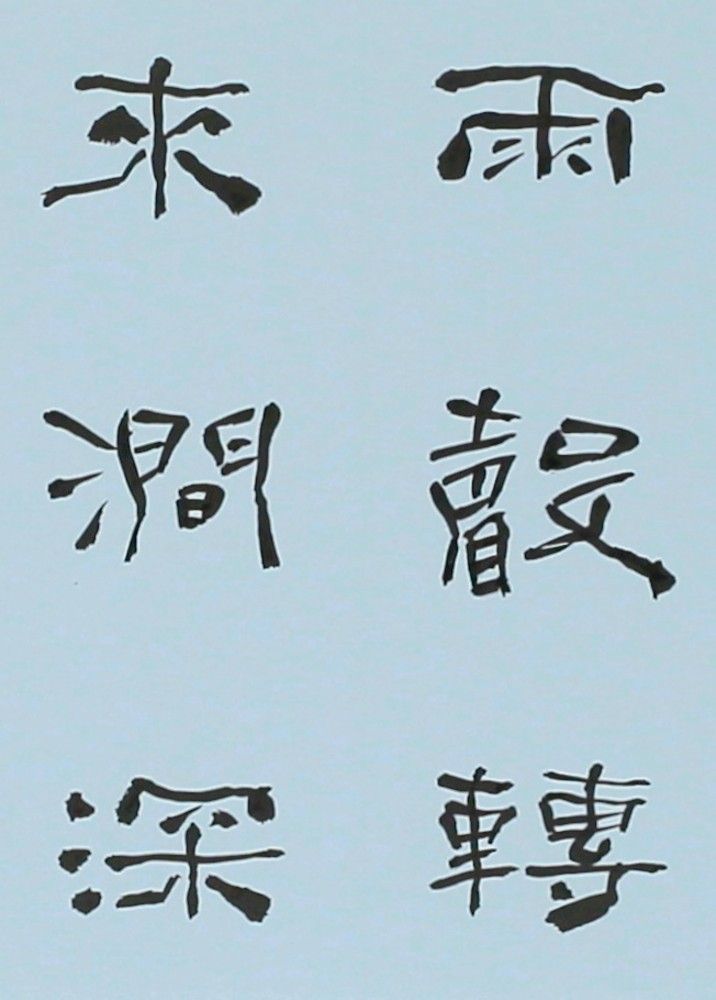 雨聲轉
來澗深